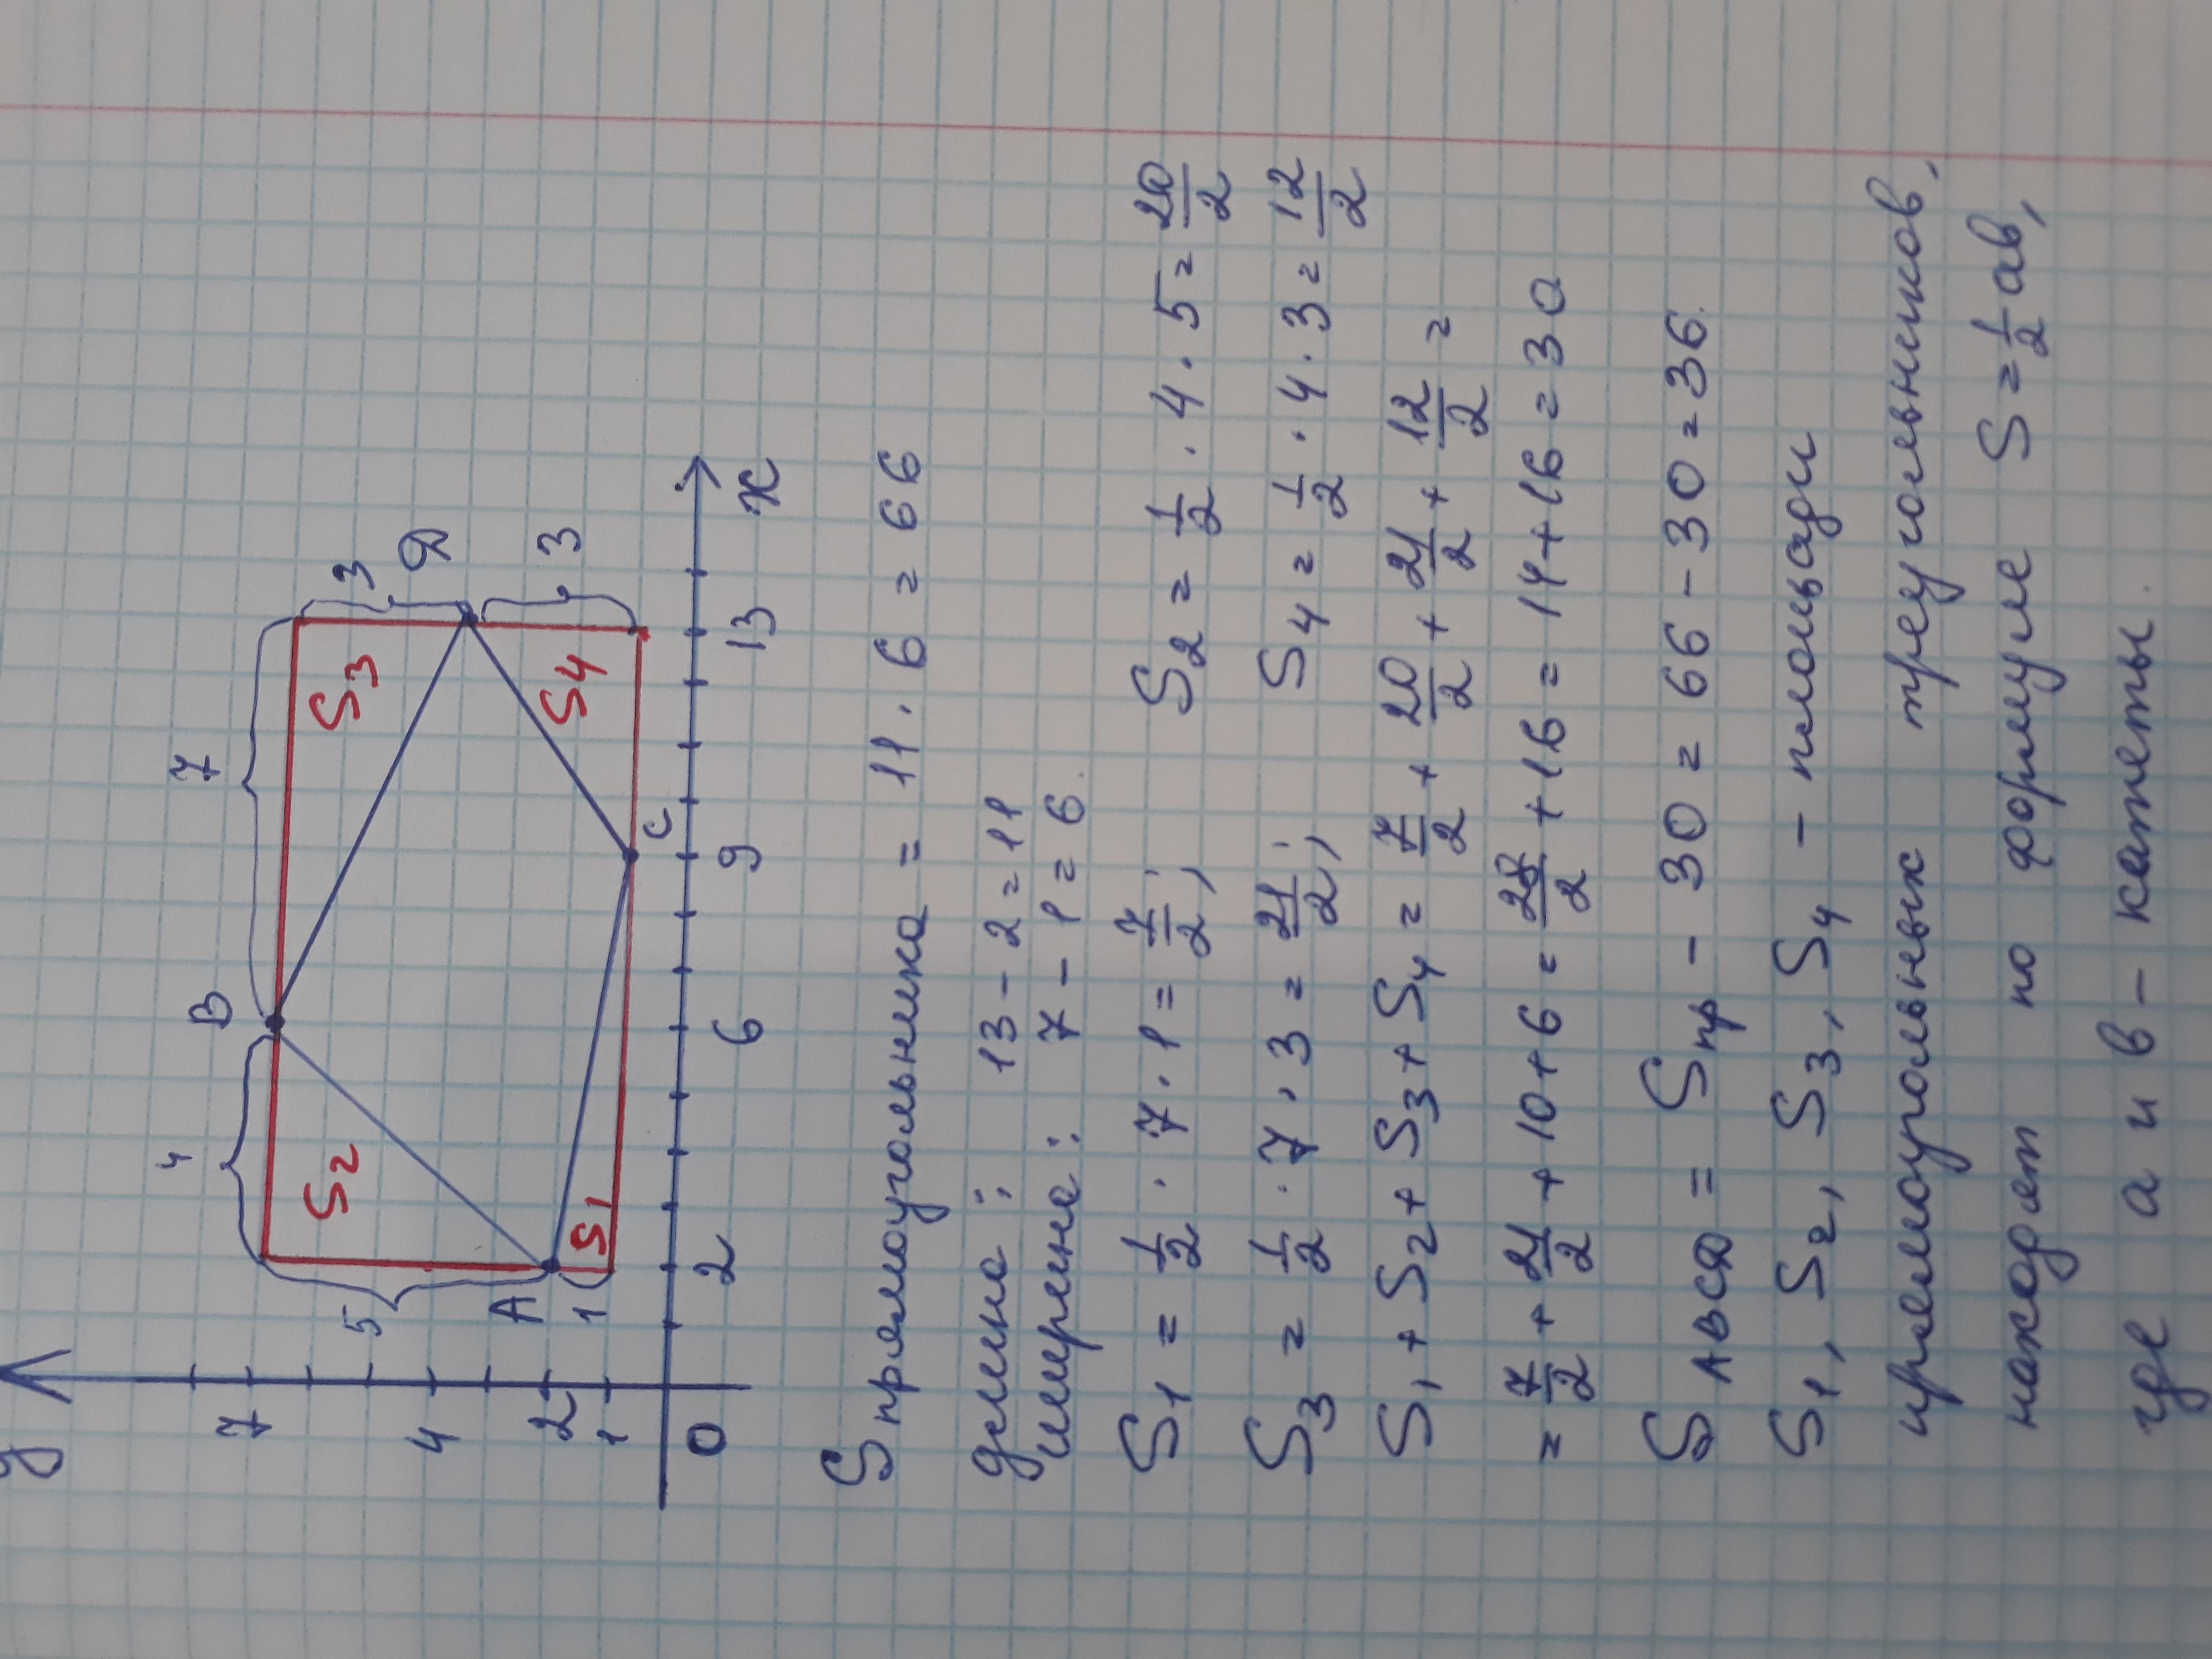 y
4 7
B
7 S2 S3 3
5
4 D
A 3
2 S4
1 1 S1 C
0 2 6 9 13 x
Sпрямоугольника = 11 · 6 = 66
длина: 13 - 2 = 11
ширина: 7 - 1 = 6.
S1 = 1/2 · 7 · 1 = 7/2; S2 = 1/2 · 4 · 5 = 20/2
S3 = 1/2 · 7 · 3 = 21/2; S4 = 1/2 · 4 · 3 = 12/2
S1 + S2 + S3 + S4 = 7/2 + 20/2 + 21/2 + 12/2 =
= 7/2 + 21/2 + 10 + 6 = 28/2 + 16 = 14 + 16 = 30
SABCD = Sпр - 30 = 66 - 30 = 36.
S1, S2, S3, S4 - площади
прямоугольных треугольников,
находят по формуле S = 1/2 ав,
где а и в - катеты.